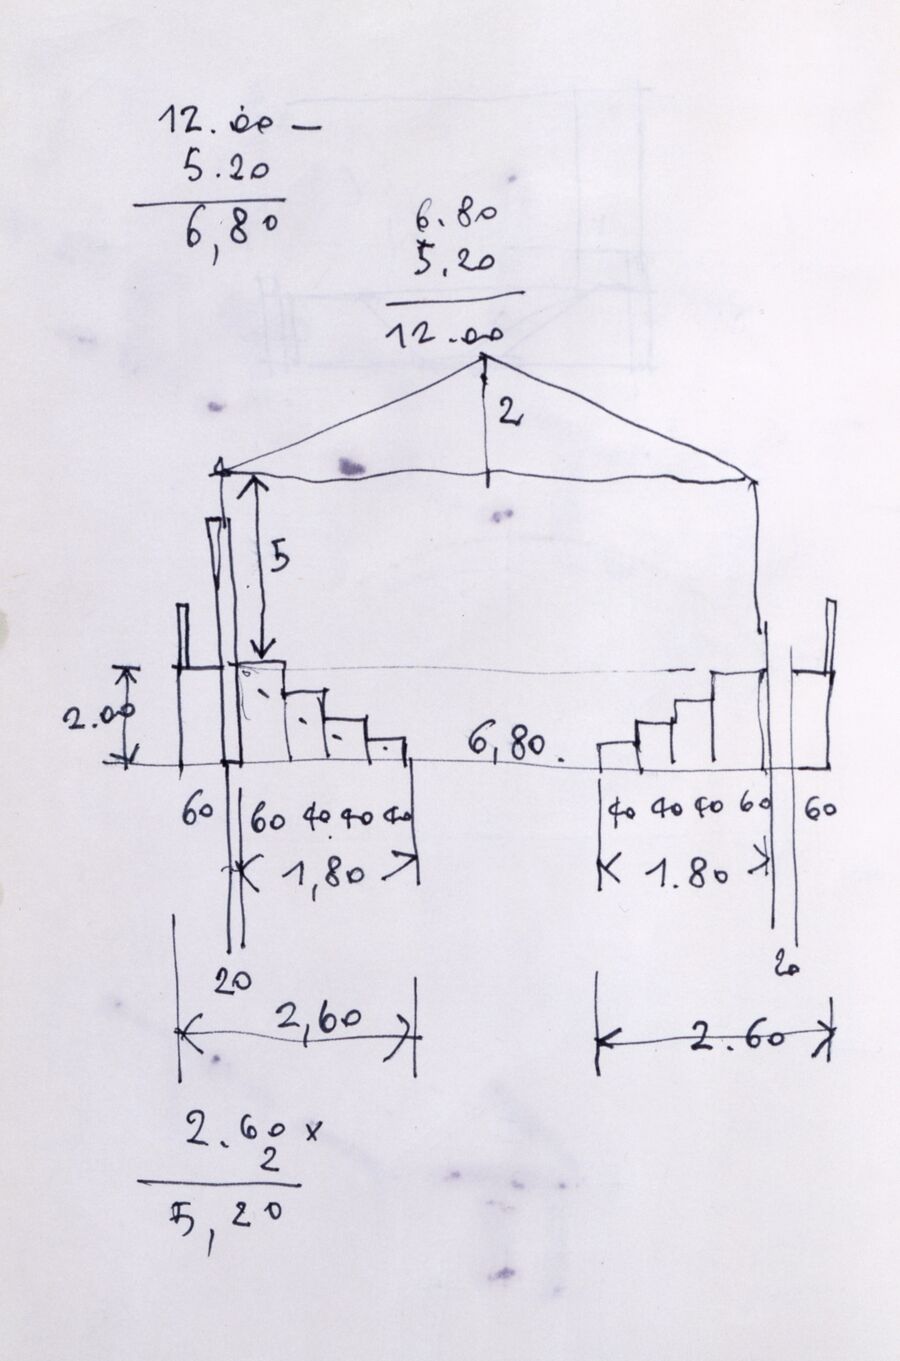 12.00 –
5.20
6,80
6.80
5,20
12.00
2
5
2.00
6,80.
60 60 40 40 40
40 40 40 60 60
1,80
1.80
20
20
2,60
2.60
2.60 x
2
5,20